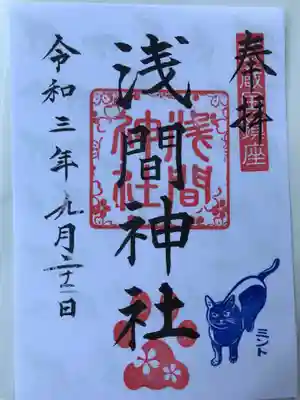 奉拝
鎮座
浅間神社
浅間
神社
令和三年九月二十一日
ミント